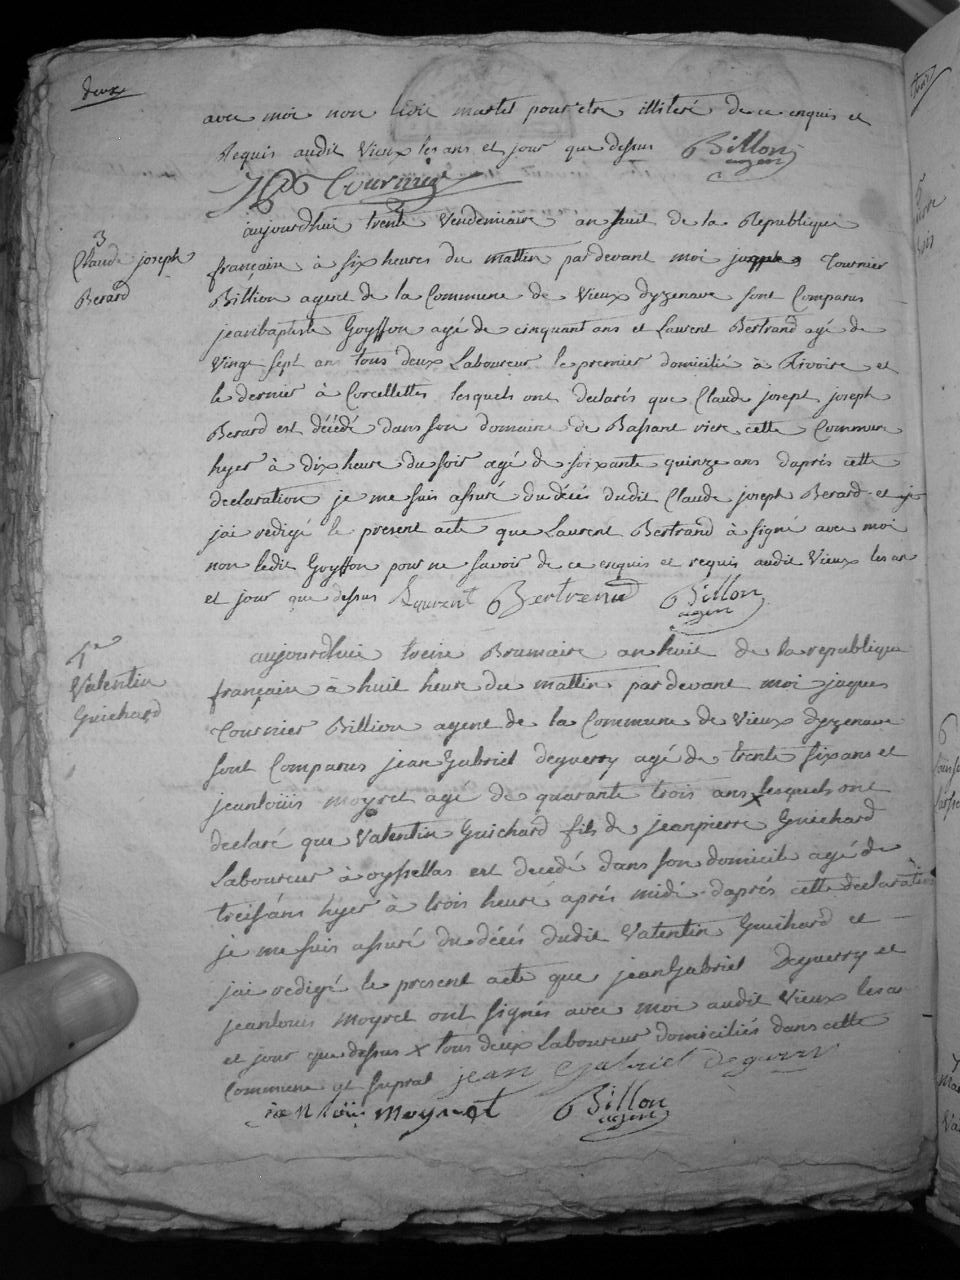 deux
avec moi non Martel pour etre illiteré de ce enquis et
Requis audit Vieux les ans et jour que dessus Billion
agent
Tournier
3
Claude joseph
Berard
aujourdhui trente Vendemiaire an huit de la Republique
françaine à six heures du mattin pardevant moi jacques Tournier
Billion agent de la Commune de Vieux dyzenave sont Comparus
jeanbaptiste Goyffon agé de cinquant ans et Laurent Bertrand agé de
Vingt sept ans tous deux Laboureur le premier domicilié à Rivoire et
le dernier à Corcellettes lesquels ont declarés que Claude joseph joseph
Berard est décédé dans son domaine de Bassant riere cette Commune
hyer à dix heure du soir agé de soixante quinze ans daprés cette
declaration je me suis assuré du décés dudit Claude joseph Berard et je
jai redigé le present acte que Laurent Bertrand à signé avec moi
non ledit Goyffon pour ne savoir de ce enquis et requis audit Vieux les an
et jour que dessus Laurent Bertrend Billon
agent
4e
Valentin
Guichard
aujourdhui treize Brumaire an huit de la republique
françaine à huit heure du mattin pardevant moi jaques
Tournier Billion agent de la Commune de Vieux dyzenave
sont Comparus jean Gabriel deguerry agé de trente six ans et
jeanlouiis moyret agé de quarante trois ans x lesquels ont
declaré que Valentin Guichard fils de jeanpierre Guichard
Laboureur à oyssellas est decedé dans son domicile agé de
treise ans hyer à trois heure aprés midi daprés cette declaration
je me suis assuré du décés dudit Valentin Guichard et
jai redigé le present acte que jeanGabriel Deguerry et
jeanlouis moyret ont signés avec moi audit Vieux les an
et jour que dessus x tous deux Laboureur domiciliés dans cette
Commune jean Gabriel deguerry
jean louiis moyret Billon
agent